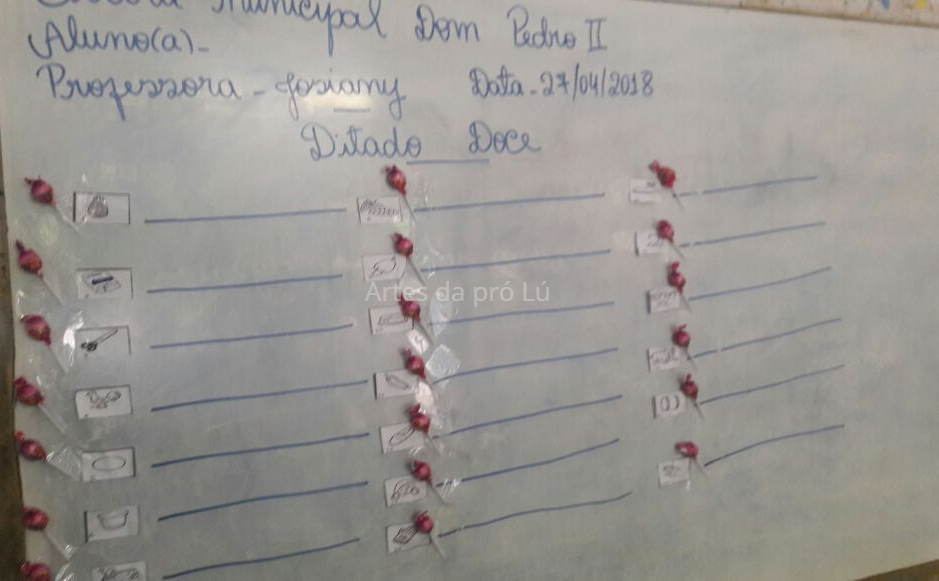 Municipal Dom Pedro II
Aluno(a)-
Professora - Josiany Data-27/04/2018
Ditado Doce
Artes da pró Lú